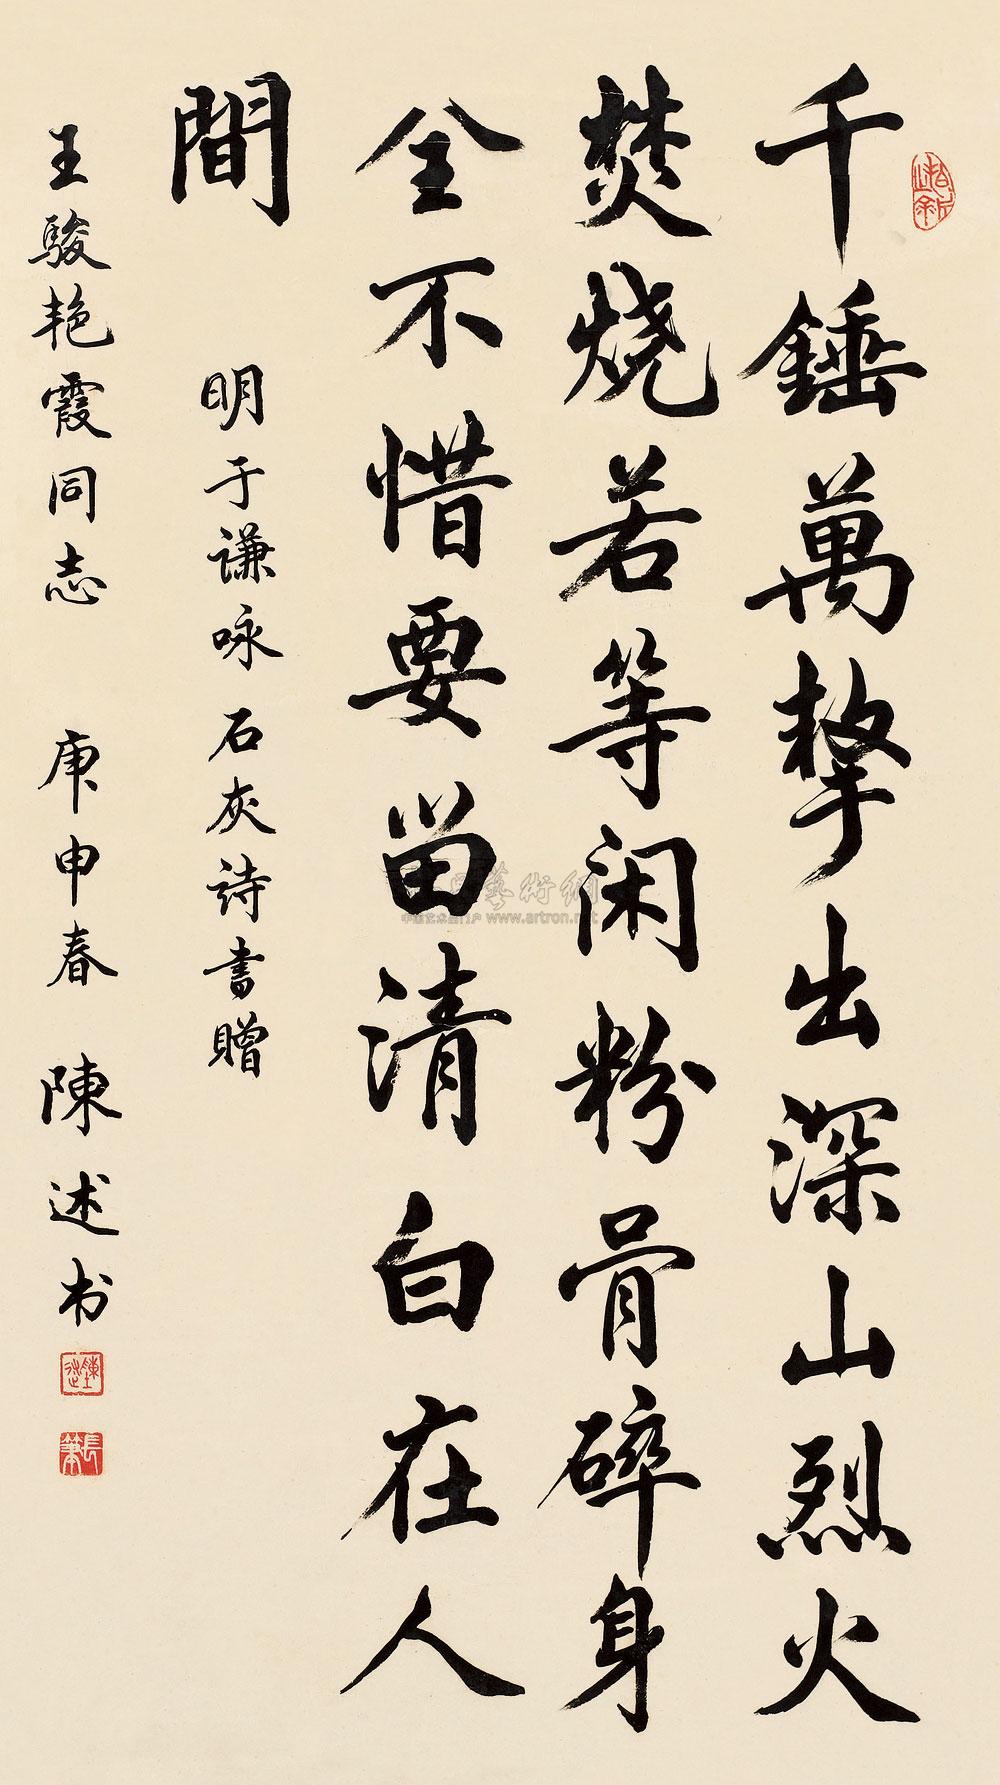 千錘萬擊出深山烈火
焚烧若等闲粉骨碎身
全不惜要留清白在人
間
明于谦咏石灰诗書贈
王駿艳霞同志 庚申春 陳述书
陳述
長策
藝術網
www.artron.net